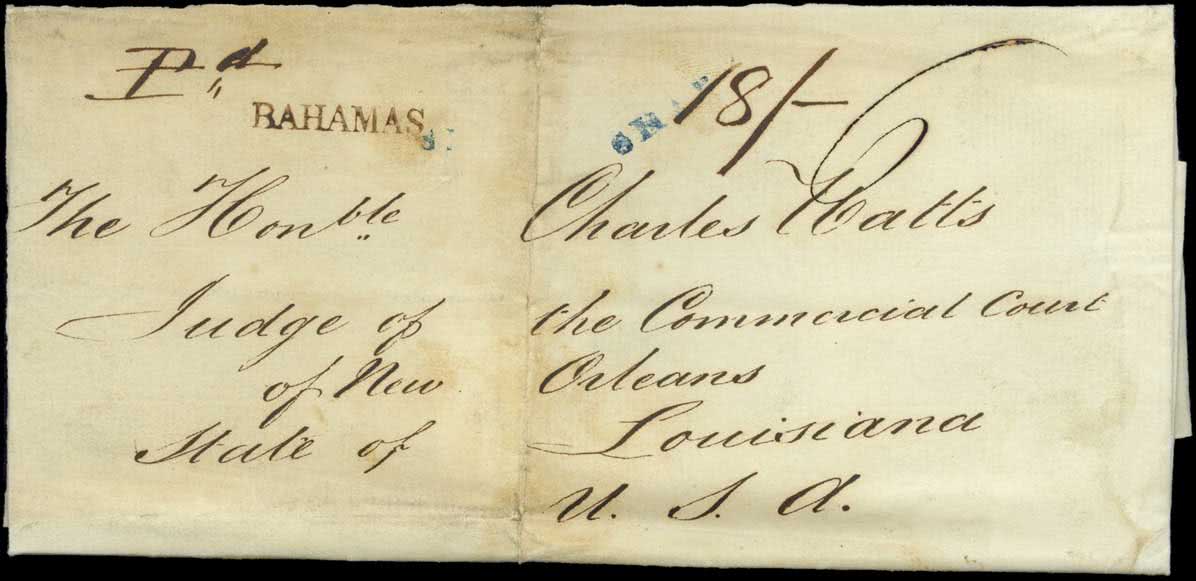 Pd 18/-
BAHAMAS
The Honble Charles Watts
Judge of the Commercial Court
of New Orleans
State of Louisiana
U. S. A.